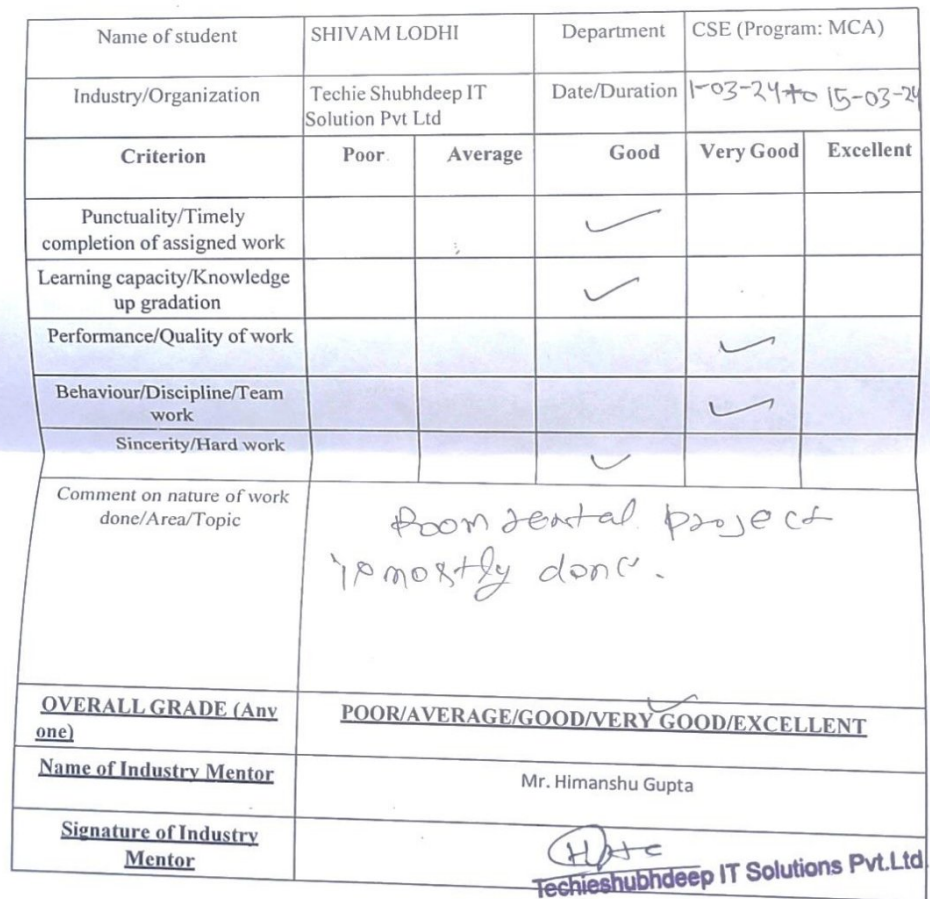 Name of student SHIVAM LODHI Department CSE (Program: MCA)
Industry/Organization Techie Shubhdeep IT Date/Duration 1-03-24 to 15-03-24
Solution Pvt Ltd
Criterion Poor Average Good Very Good Excellent
Punctuality/Timely
completion of assigned work
Learning capacity/Knowledge
up gradation
Performance/Quality of work
Behaviour/Discipline/Team
work
Sincerity/Hard work
Comment on nature of work
done/Area/Topic
Room rental project
is mostly done.
OVERALL GRADE (Any
one)
POOR/AVERAGE/GOOD/VERY GOOD/EXCELLENT
Name of Industry Mentor Mr. Himanshu Gupta
Signature of Industry
Mentor
Techieshubhdeep IT Solutions Pvt.Ltd